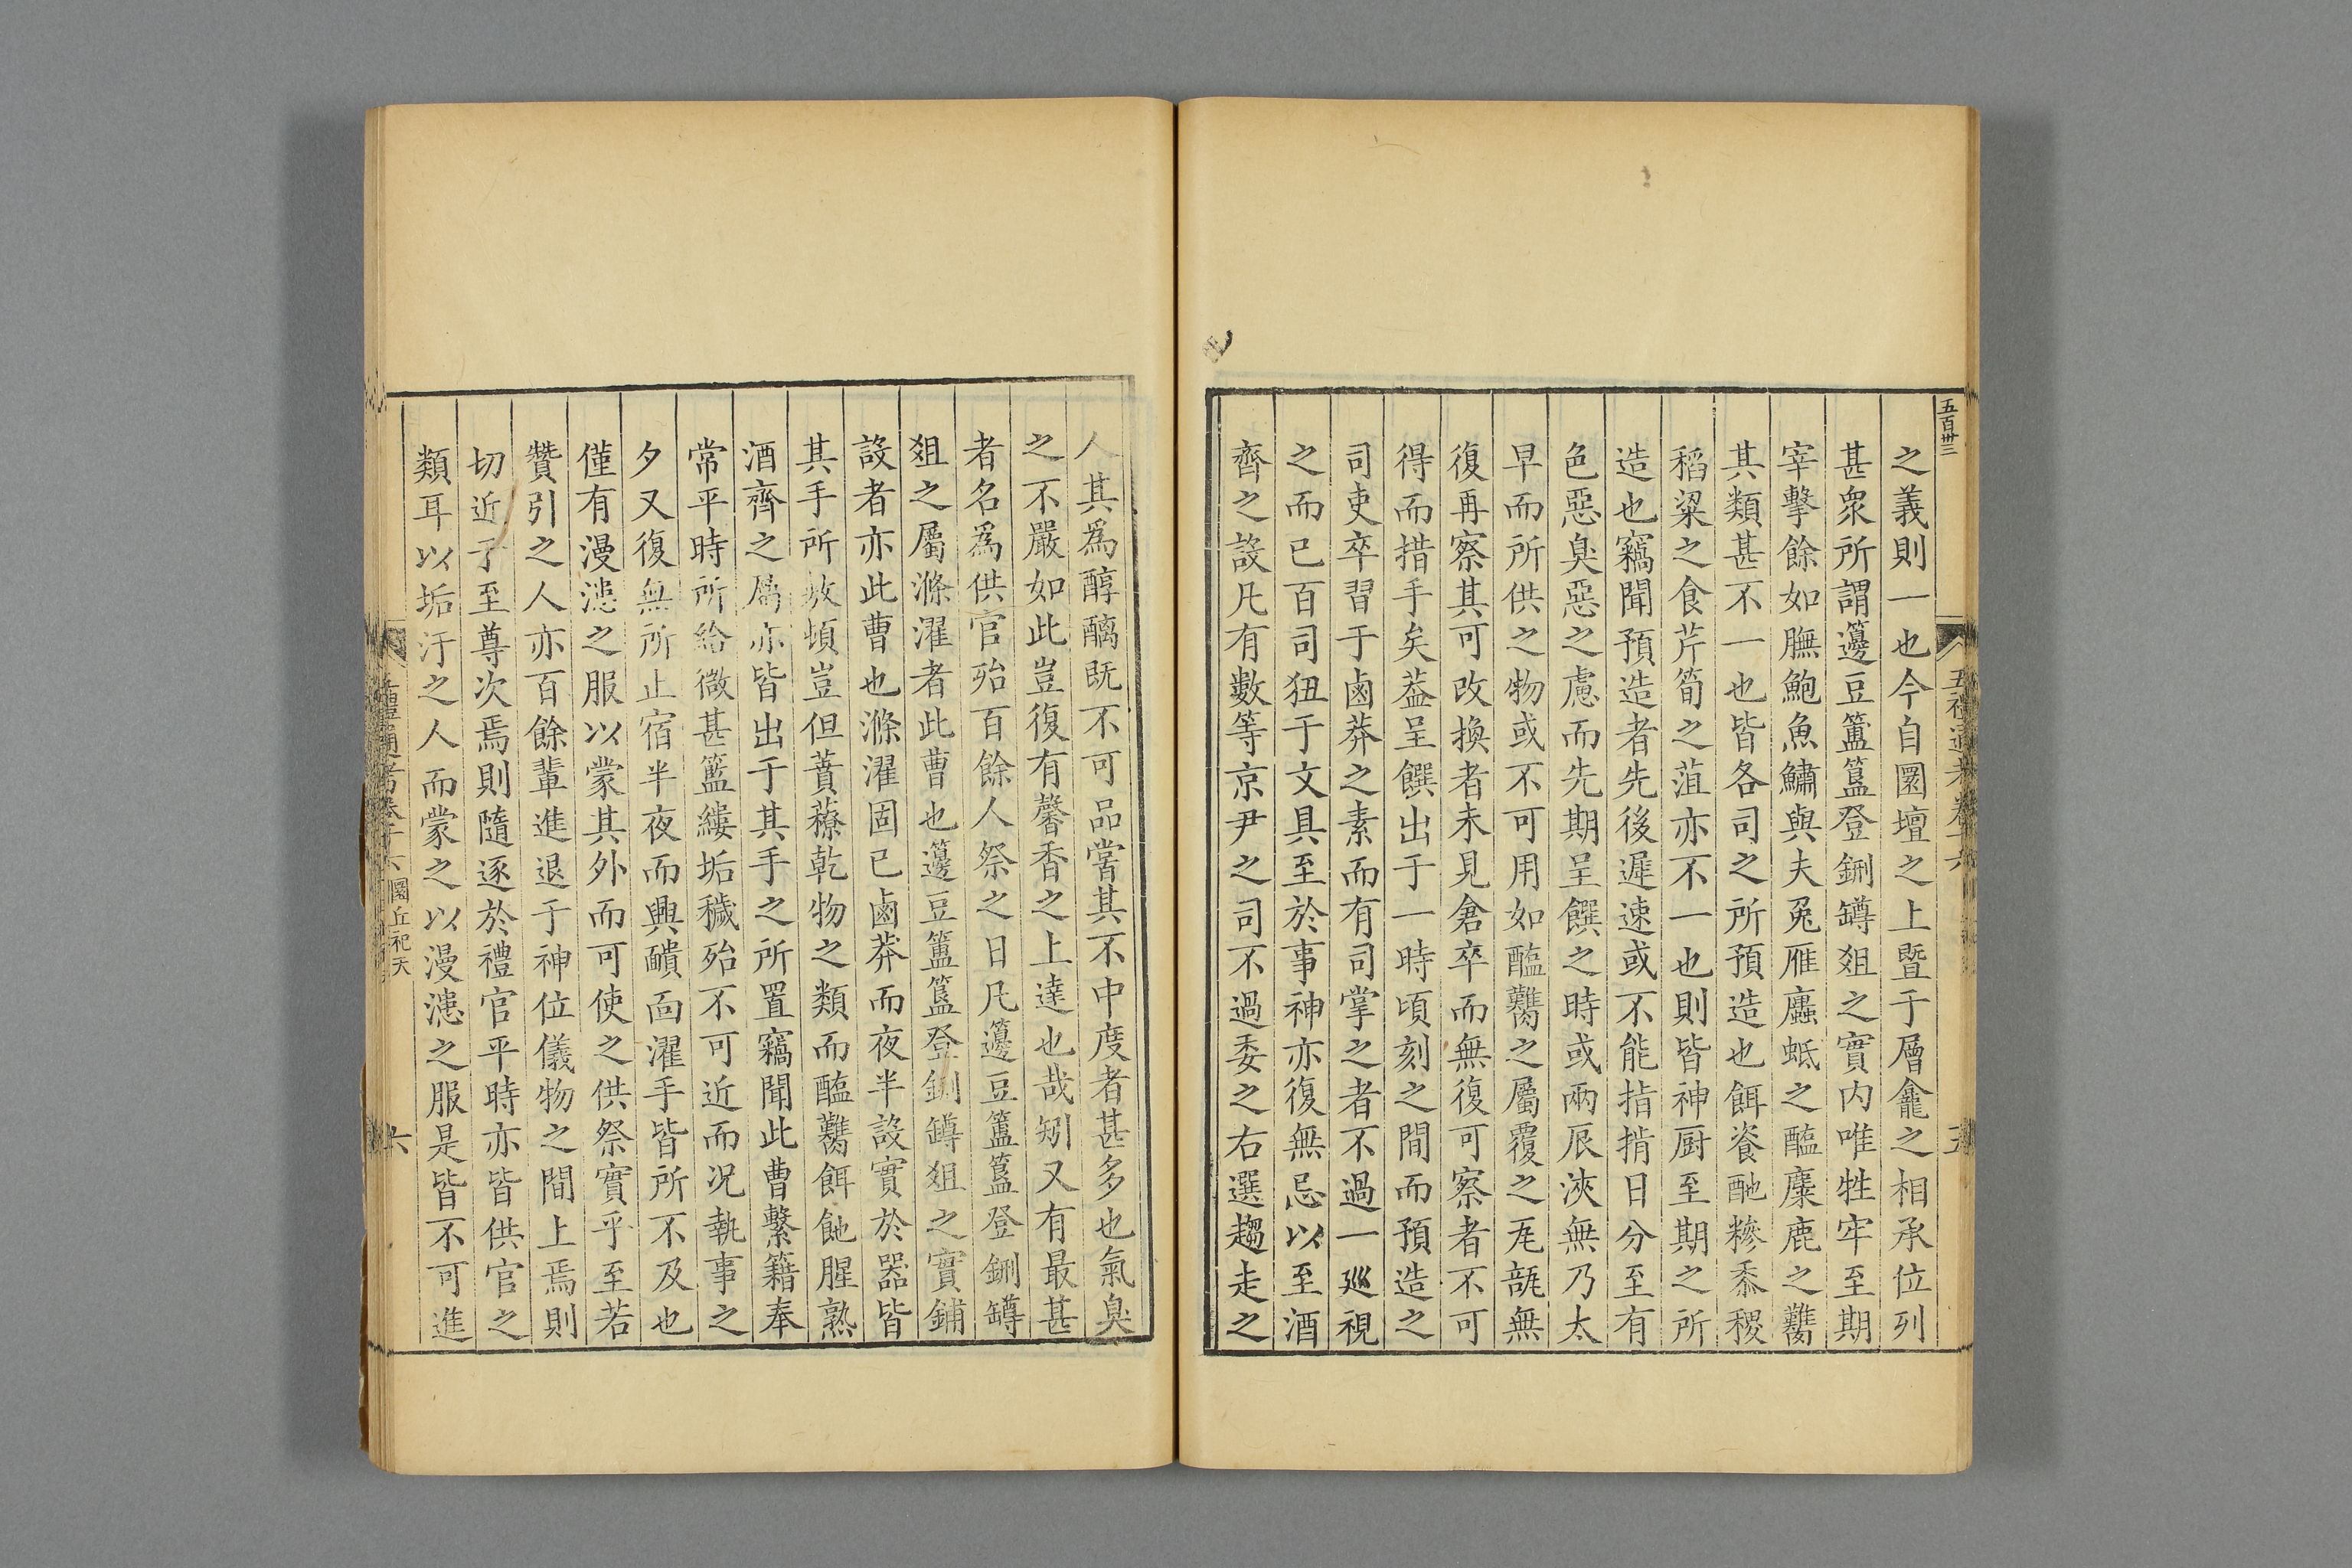 五百卅三
五禮通考卷十六
五
之義則一也今自圜壇之上暨于層龕之相承位列
甚衆所謂籩豆簠簋登鉶罇爼之實内唯牲牢至期
宰擊餘如膴鮑魚鱐與夫兎雁蠯蚳之醢麋鹿之臡
其類甚不一也皆各司之所預造也餌餈酏糝黍稷
稻粱之食芹筍之菹亦不一也則皆神厨至期之所
造也竊聞預造者先後遲速或不能指掯日分至有
色惡臭惡之慮而先期呈饌之時或兩辰浹無乃太
早而所供之物或不可用如醢臡之屬覆之㡳瓿無
復再察其可改換者未見倉卒而無復可察者不可
得而措手矣葢呈饌出于一時頃刻之間而預造之
司吏卒習于鹵莽之素而有司掌之者不過一巡視
之而已百司狃于文具至於事神亦復無忌以至酒
齊之設凡有數等京尹之司不過委之右選趨走之
人其爲醇醨既不可品嘗其不中度者甚多也氣臭
之不嚴如此豈復有馨香之上達也哉矧又有最甚
者名爲供官殆百餘人祭之日凡籩豆簠簋登鉶罇
爼之屬滌濯者此曹也籩豆簠簋登鉶罇爼之實鋪
設者亦此曹也滌濯固已鹵莽而夜半設實於器皆
其手所敓頓豈但蕡薧乾物之類而醢臡餌酏腥熟
酒齊之屬亦皆出于其手之所置竊聞此曹繫籍奉
常平時所給微甚籃縷垢穢殆不可近而況執事之
夕又復無所止宿半夜而興靧面濯手皆所不及也
僅有漫漶之服以蒙其外而可使之供祭實乎至若
贊引之人亦百餘輩進退于神位儀物之間上焉則
切近于至尊次焉則隨逐於禮官平時亦皆供官之
類耳以垢汙之人而蒙之以漫漶之服是皆不可進
五禮通考卷十六 圜丘祀天
六